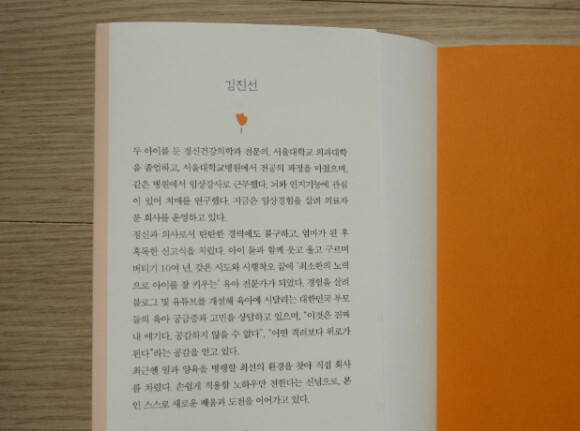 김진선
두 아이를 둔 정신건강의학과 전문의. 서울대학교 의과대학
을 졸업하고, 서울대학교병원에서 전공의 과정을 마쳤으며,
같은 병원에서 임상강사로 근무했다. 뇌와 인지기능에 관심
이 있어 치매를 연구했다. 지금은 임상경험을 살려 의료자
문 회사를 운영하고 있다.
정신과 의사로서 탄탄한 경력에도 불구하고, 엄마가 된 후
혹독한 신고식을 치렀다. 아이 둘과 함께 웃고 울고 구르며
버티기 10여 년, 갖은 시도와 시행착오 끝에 '최소한의 노력
으로 아이를 잘 키우는' 육아 전문가가 되었다. 경험을 살려
블로그 및 유튜브를 개설해 육아에 시달리는 대한민국 부모
들의 육아 궁금증과 고민을 상담하고 있으며, "이것은 진짜
내 얘기다. 공감하지 않을 수 없다", "어떤 격려보다 위로가
된다"라는 공감을 얻고 있다.
최근엔 일과 양육을 병행할 최선의 환경을 찾아 직접 회사
를 차렸다. 손쉽게 적용할 노하우만 전한다는 신념으로, 본
인 스스로 새로운 배움과 도전을 이어가고 있다.